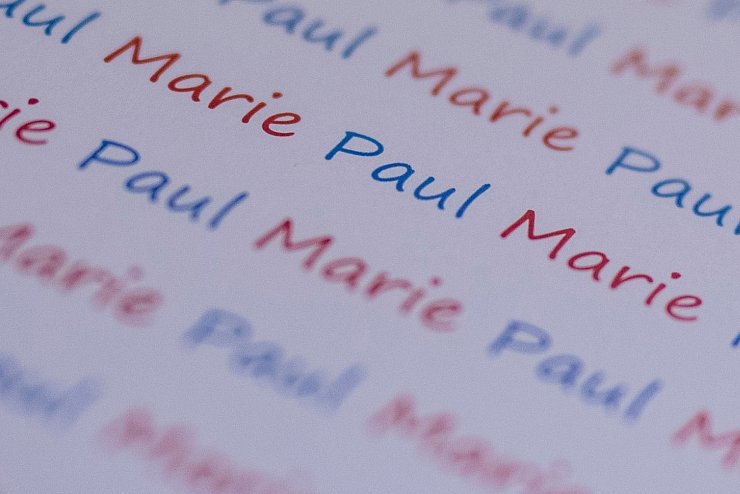 Paul Mar
Paul Marie Paul
aul Marie Paul Marie
rie Paul Marie Paul M
Marie Paul Marie
aul Marie